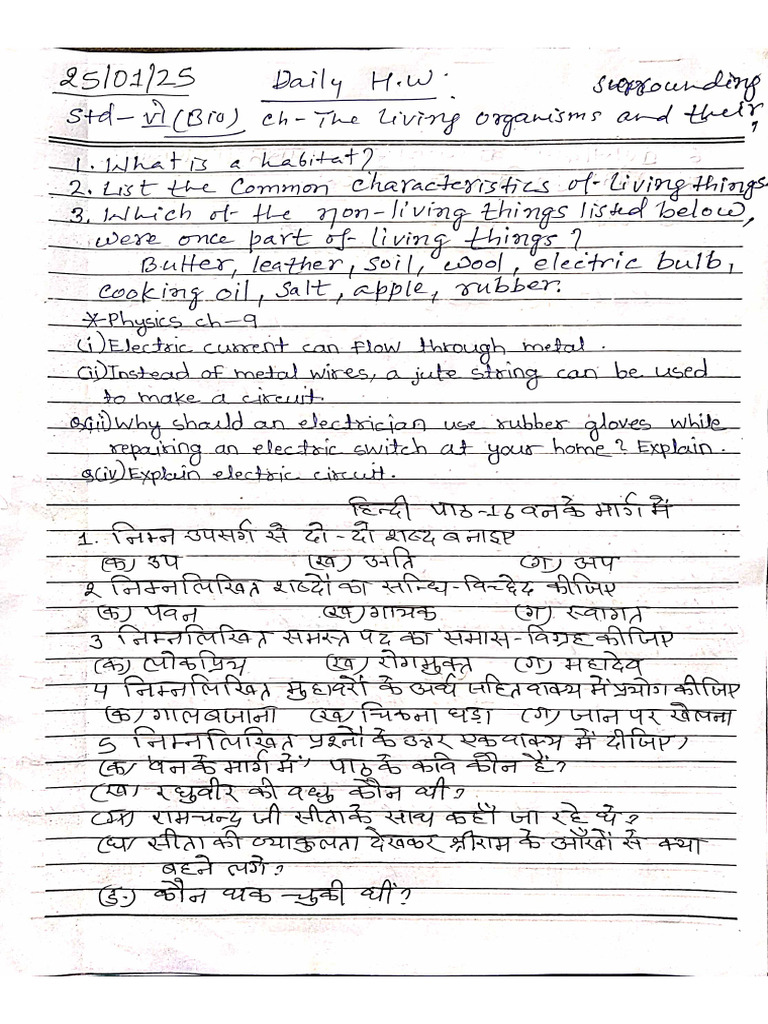 25/01/25 Daily H.W. surrounding
Std- VI (Bio) ch- The living organisms and their,
1. What is a habitat?
2. List the common characteristics of living things.
3. Which of the non-living things listed below,
were once part of living things?
Butter, leather, soil, wool, electric bulb,
cooking oil, salt, apple, rubber.
*Physics ch-9
(i) Electric current can flow through metal.
(ii) Instead of metal wires, a jute string can be used
to make a circuit.
Q(iii) Why should an electrician use rubber gloves while
repairing an electric switch at your home? Explain.
Q(iv) Explain electric circuit.
हिन्दी पाठ-16 वन के मार्ग में
1. निम्न उपसर्ग से दो-दो शब्द बनाइए
(क) उप (ख) अति (ग) अप
2 निम्नलिखित शब्दों का सन्धि-विच्छेद कीजिए
(क) पवन (ख) गायक (ग) स्वागत
3 निम्नलिखित समस्त पद का समास-विग्रह कीजिए
(क) लोकप्रिय (ख) रोगमुक्त (ग) महादेव
4 निम्नलिखित मुहावरों के अर्थ सहित वाक्य में प्रयोग कीजिए
(क) गाल बजाना (ख) चिकना घड़ा (ग) जान पर खेलना
5 निम्नलिखित प्रश्नों के उत्तर एक वाक्य में दीजिए?
(क) 'वन के मार्ग में' पाठ के कवि कौन हैं?
(ख) रघुवीर की वधु कौन थी?
(ग) रामचन्द्र जी सीता के साथ कहाँ जा रहे थे?
(घ) सीता की व्याकुलता देखकर श्रीराम के आँखों से क्या
बहने लगे?
(ङ) कौन थक चुकी थीं?